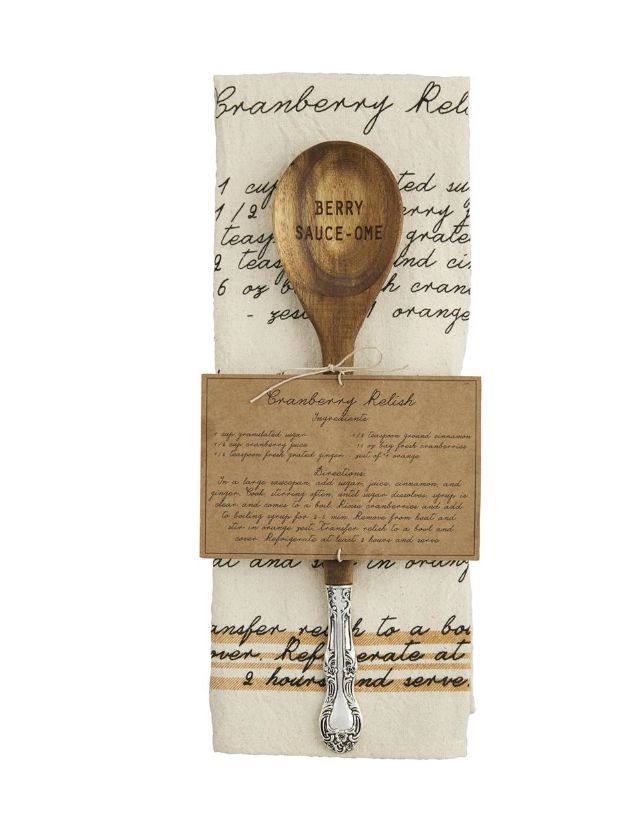 Cranberry Reli
1 cup ted su
1/2 erry j
teasp grate
2 teas nd ci
6 oz b h cran
- zes 1 orange
BERRY
SAUCE-OME
Cranberry Relish
Ingredients:
1 cup granulated sugar
1/2 cup cranberry juice
1/2 teaspoon fresh grated ginger
1/2 teaspoon ground cinnamon
oz bag fresh cranberries
zest of 1 orange
Directions:
In a large saucepan, add sugar, juice, cinnamon, and
ginger. Cook, stirring often, until sugar dissolves, syrup is
clear and comes to a boil. Rinse cranberries and add
to boiling syrup for 2-3 min. Remove from heat and
stir in orange zest. Transfer relish to a bowl and
cover. Refrigerate at least 2 hours and serve.
at and s in orang
ansfer rel h to a bo
over. Ref erate at
2 hours nd serve.